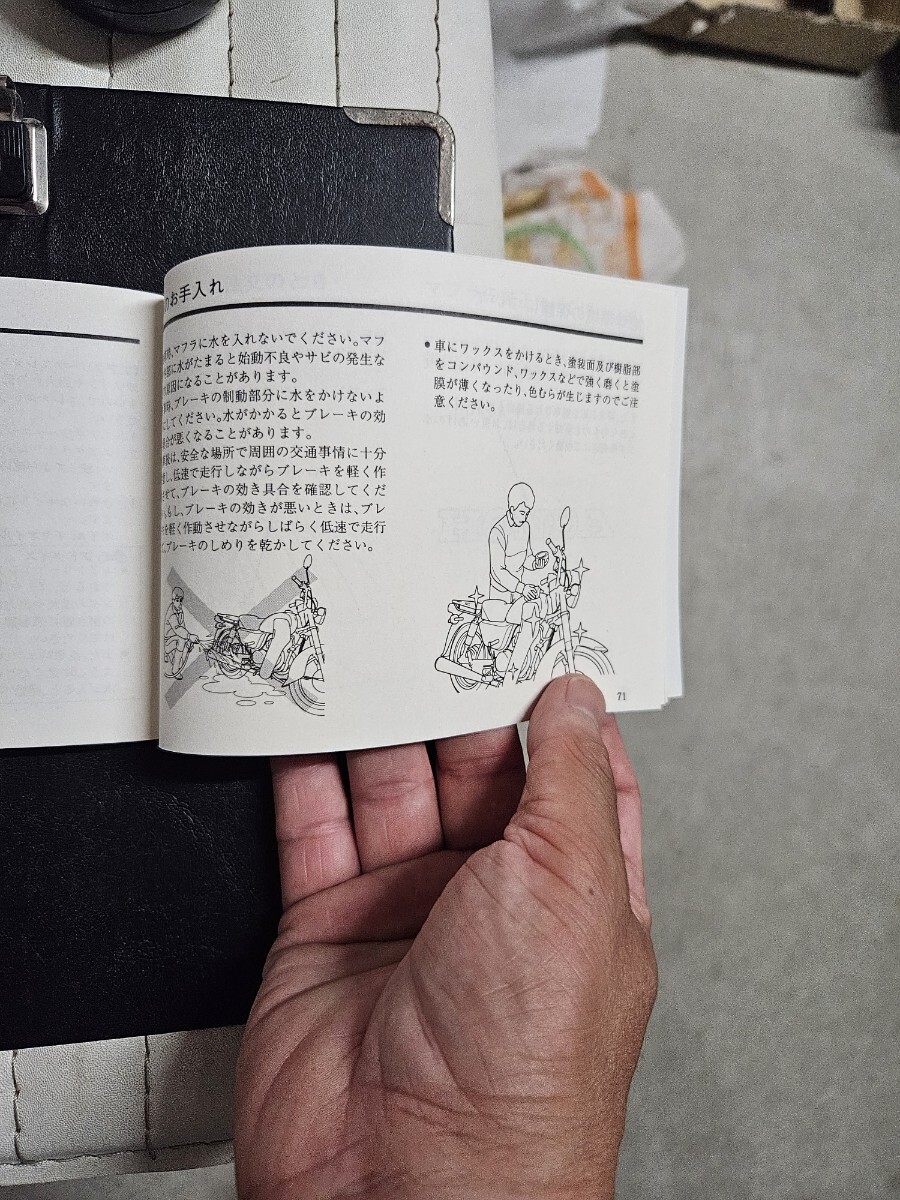 お手入れ
、マフラに水を入れないでください。マフ
に水がたまると始動不良やサビの発生な
原因になることがあります。
、ブレーキの制動部分に水をかけないよ
してください。水がかかるとブレーキの効
合が悪くなることがあります。
後は、安全な場所で周囲の交通事情に十分
し、低速で走行しながらブレーキを軽く作
させて、ブレーキの効き具合を確認してくだ
もし、ブレーキの効きが悪いときは、ブレ
を軽く作動させながらしばらく低速で走行
ブレーキのしめりを乾かしてください。
● 車にワックスをかけるとき、塗装面及び樹脂部
をコンパウンド、ワックスなどで強く磨くと塗
膜が薄くなったり、色むらが生じますのでご注
意ください。
71